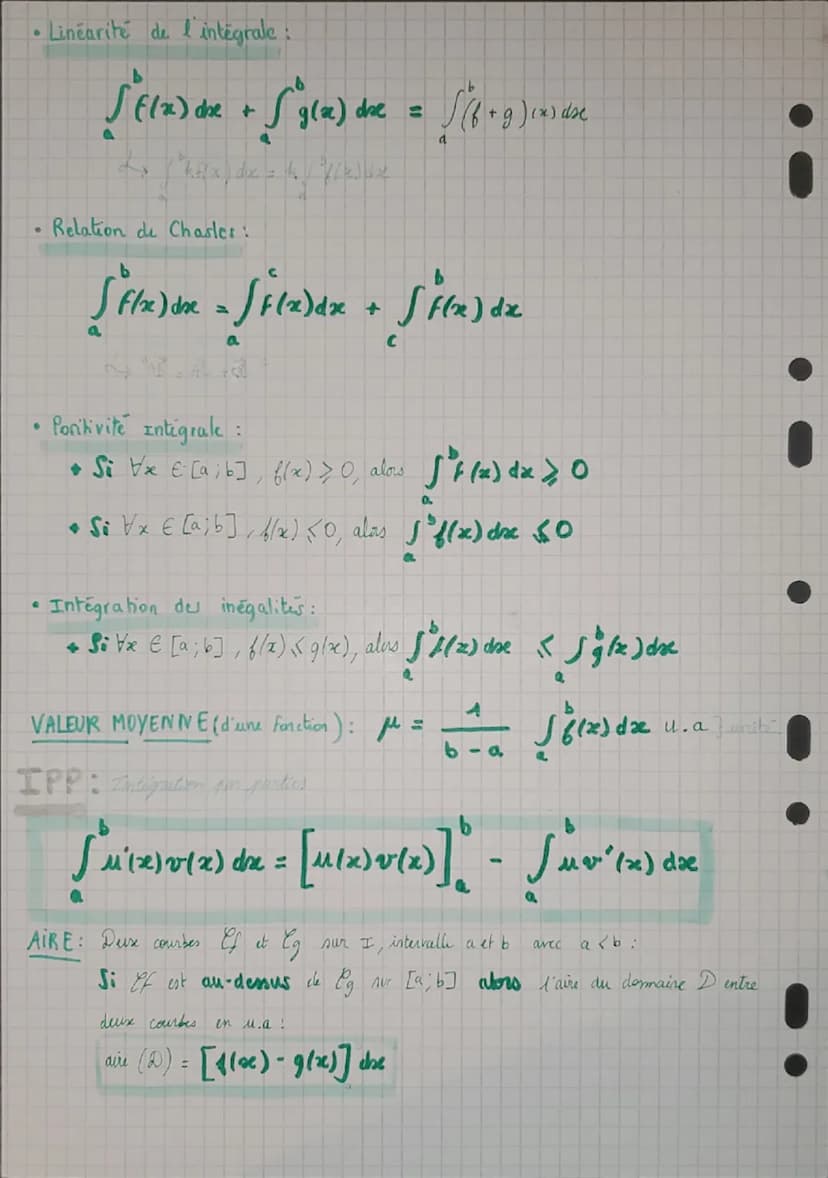 • Linéarité de l'intégrale :
∫_a^b f(x) dx + ∫_a^b g(x) dx = ∫_a^b (f + g)(x) dx
↳ ∫_a^b kf(x) dx = k ∫_a^b f(x) dx
• Relation de Chasles :
∫_a^b f(x) dx = ∫_a^c f(x) dx + ∫_c^b f(x) dx
• Positivité Intégrale :
• Si ∀x ∈ [a ; b], f(x) ⩾ 0, alors ∫_a^b f(x) dx ⩾ 0
• Si ∀x ∈ [a ; b], f(x) ⩽ 0, alors ∫_a^b f(x) dx ⩽ 0
• Intégration des inégalités :
• Si ∀x ∈ [a ; b], f(x) ⩽ g(x), alors ∫_a^b f(x) dx ⩽ ∫_a^b g(x) dx
VALEUR MOYENNE (d'une fonction) : μ = 1/(b - a) ∫_a^b f(x) dx u.a } unité
IPP : Intégration par parties
∫_a^b u'(x) v(x) dx = [u(x) v(x)]_a^b - ∫_a^b u v'(x) dx
AIRE : Deux courbes Cf et Cg sur I, intervalle a et b avec a < b :
Si Cf est au-dessus de Cg sur [a ; b] alors l'aire du domaine D entre
deux courbes en u.a :
aire (D) = [f(x) - g(x)] dx